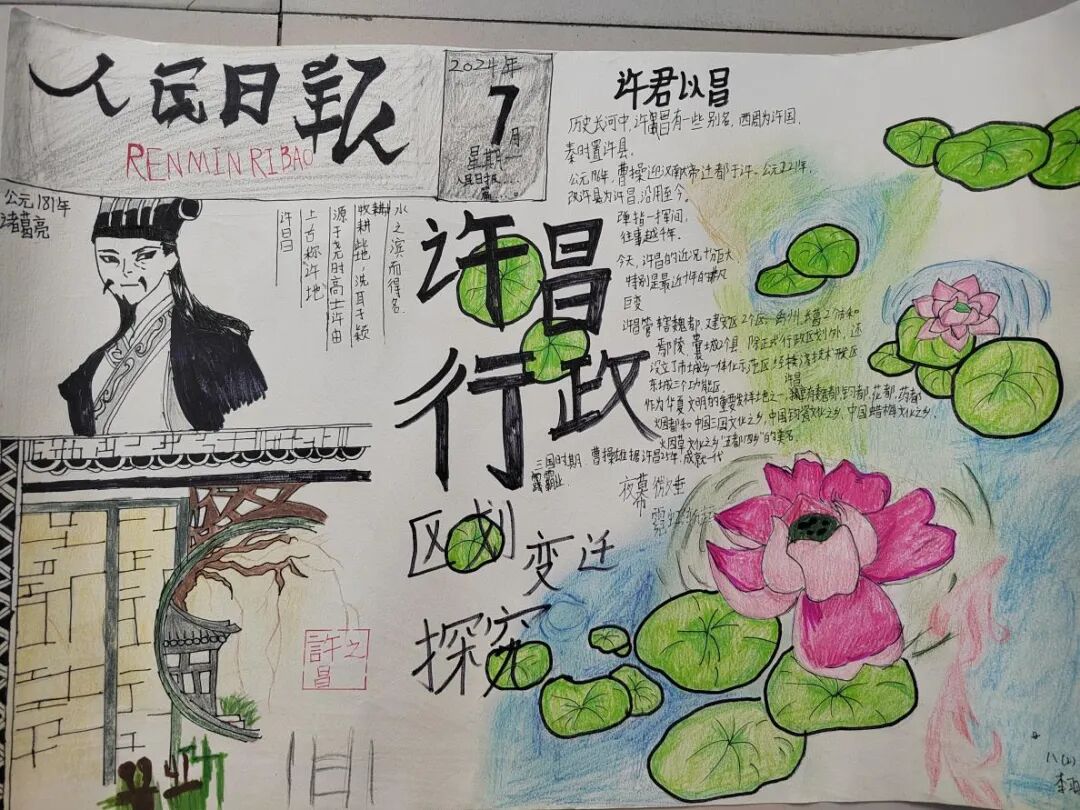 人民日报
RENMIN RIBAO
2024年
7
月
星期一
人民日报
公元181年
诸葛亮
水之滨而得名
牧耕此地,洗耳于颍
源于尧时高士许由
上古称许地
许昌
许昌
行政
区划
变迁
探究
許之
昌
许君以昌
历史长河中,许昌有一些别名,西周为许国,
秦时置许县,
曹操迎汉献帝迁都于许。公元221年,
改许县为许昌,沿用至今。
弹指一挥间,
往事越千年,
今天,许昌的近况十分巨大
特别是最近十年的
巨变
许昌管辖魏都、建安区2个区、禹州、长葛2个市和
鄢陵、襄城2个县 除正式行政区划外,还
设立了市城乡一体化示范区、经济技术开发区
东城三个功能区。
许昌
作为华夏文明的重要发祥地之一,花都,药都
烟都和中国三国文化之乡,中国钧瓷文化之乡,中国蜡梅文化之乡,
烟草文化之乡"五都四乡"的美名。
三国时期,曹操雄据许昌25年,成就一代
霸业
夜幕微垂
霓虹